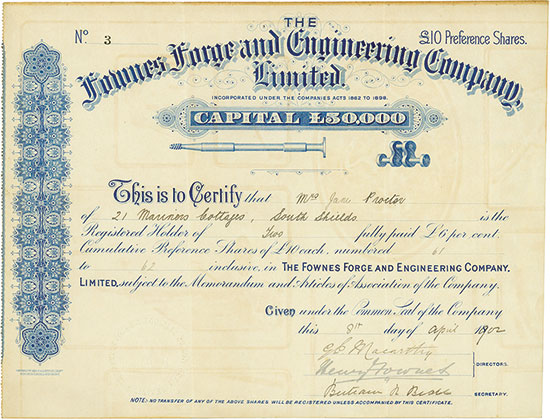 THE
Nº 3 £10 Preference Shares.
Fownes Forge and Engineering Company,
Limited.
INCORPORATED UNDER THE COMPANIES ACTS 1862 TO 1898.
CAPITAL £50,000
This is to Certify that Mrs Jane Proctor
of 21 Mariners Cottages, South Shields is the
Registered Holder of Two fully paid £6 per cent.
Cumulative Preference Shares of £10 each, numbered 61
to 62 inclusive, in THE FOWNES FORGE AND ENGINEERING COMPANY,
LIMITED, subject to the Memorandum and Articles of Association of the Company.
Given under the Common Seal of the Company
this 8th day of April 1902
Macarthy
Henry Fownes
DIRECTORS.
SECRETARY.
NOTE: NO TRANSFER OF ANY OF THE ABOVE SHARES WILL BE REGISTERED UNLESS ACCOMPANIED BY THIS CERTIFICATE.